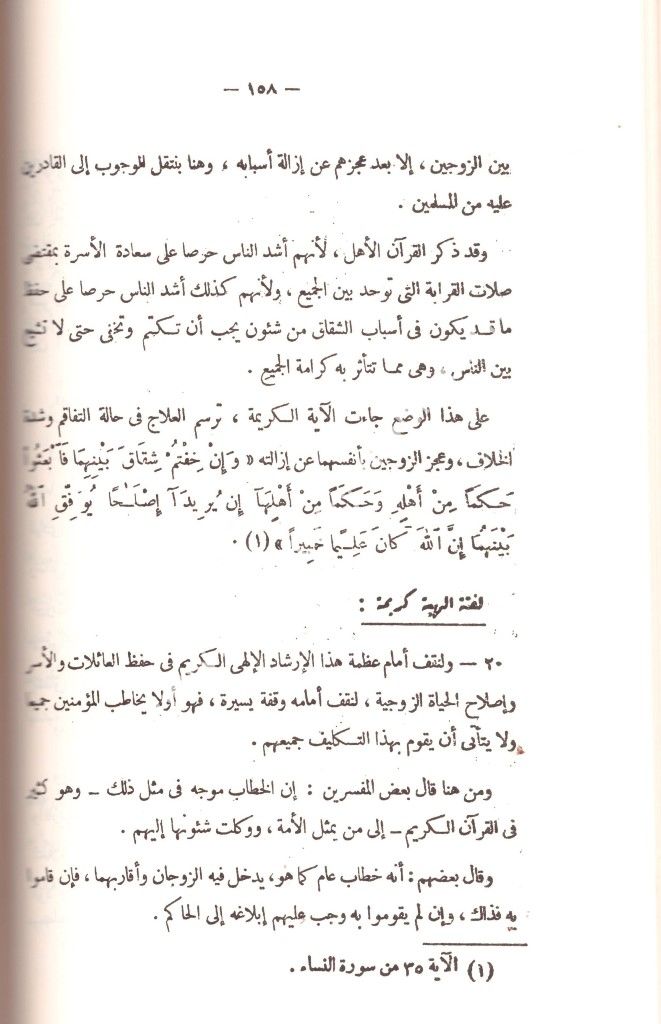 — ١٥٨ —
بين الزوجين ، إلا بعد عجزهم عن إزالة أسبابه ، وهنا ينتقل الوجوب إلى القادرين
عليه من المسلمين .
وقد ذكر القرآن الأهل ، لأنهم أشد الناس حرصا على سعادة الأسرة بمقتضى
صلات القرابة التى توحد بين الجميع ، ولأنهم كذلك أشد الناس حرصا على حفظ
ما قد يكون فى أسباب الشقاق من شئون يجب أن تكتم وتخفى حتى لا تشيع
بين الناس ، وهى مما تتأثر به كرامة الجميع .
على هذا الوضع جاءت الآية الكريمة ، ترسم العلاج فى حالة التفاقم وشدة
الخلاف ، وعجز الزوجين بأنفسهما عن إزالته « وَإِنْ خِفْتُمْ شِقَاقَ بَيْنِهِمَا فَٱبْعَثُوا
حَكَمًا مِنْ أَهْلِهِ وَحَكَمًا مِنْ أَهْلِهَآ إِن يُرِيدَآ إِصْلَـٰحًا يُوَفِّقِ ٱللَّهُ
بَيْنَهُمَا إِنَّ ٱللَّهَ كَانَ عَلِيمًا خَبِيراً » (١) .
لفتة إلهية كريمة :
٢٠ — ولنقف أمام عظمة هذا الإرشاد الإلهى الكريم فى حفظ العائلات والأسر
وإصلاح الحياة الزوجية ، لنقف أمامه وقفة يسيرة ، فهو أولا يخاطب المؤمنين جميعا
ولا يتأتى أن يقوم بهذا التكليف جميعهم .
ومن هنا قال بعض المفسرين : إن الخطاب موجه فى مثل ذلك — وهو كثير
فى القرآن الكريم — إلى من يمثل الأمة ، ووكلت شئونها إليهم .
وقال بعضهم : أنه خطاب عام كما هو ، يدخل فيه الزوجان وأقاربهما ، فإن قاموا
به فذاك ، وإن لم يقوموا به وجب عليهم إبلاغه إلى الحاكم .
(١) الآية ٣٥ من سورة النساء .